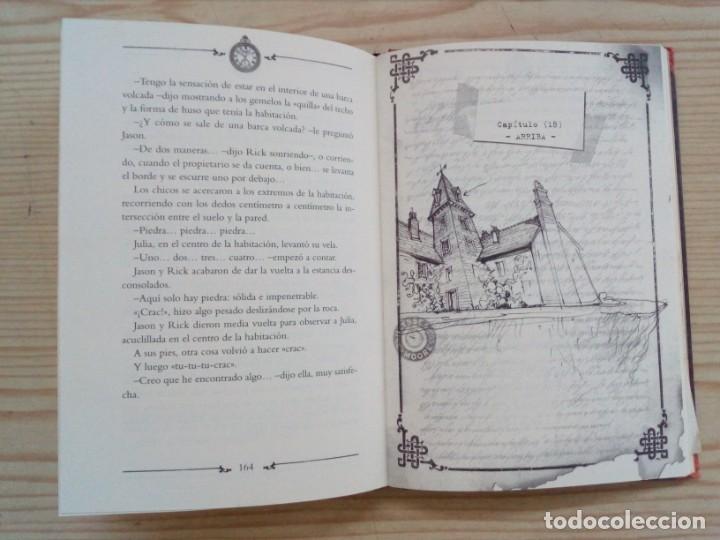 –Tengo la sensación de estar en el interior de una barca
volcada –dijo mostrando a los gemelos la «quilla» del techo
y la forma de huso que tenía la habitación.
–¿Y cómo se sale de una barca volcada? –le preguntó
Jason.
–De dos maneras… –dijo Rick sonriendo–, o corrien-
do, cuando el propietario se da cuenta, o bien… se levanta
el borde y se escurre uno por debajo…
Los chicos se acercaron a los extremos de la habitación,
recorriendo con los dedos centímetro a centímetro la in-
tersección entre el suelo y la pared.
–Piedra… piedra… piedra…
Julia, en el centro de la habitación, levantó su vela.
–Uno… dos… tres… cuatro… –empezó a contar.
Jason y Rick acabaron de dar la vuelta a la estancia des-
consolados.
–Aquí solo hay piedra: sólida e impenetrable.
«¡Crac!», hizo algo pesado deslizándose por la roca.
Jason y Rick dieron media vuelta para observar a Julia,
acuclillada en el centro de la habitación.
A sus pies, otra cosa volvió a hacer «crac».
Y luego «tu-tu-tu-crac».
–Creo que he encontrado algo… –dijo ella, muy satisfe-
cha.
164
Capítulo (18)
- ARRIBA -
MOORE
todocoleccion.net